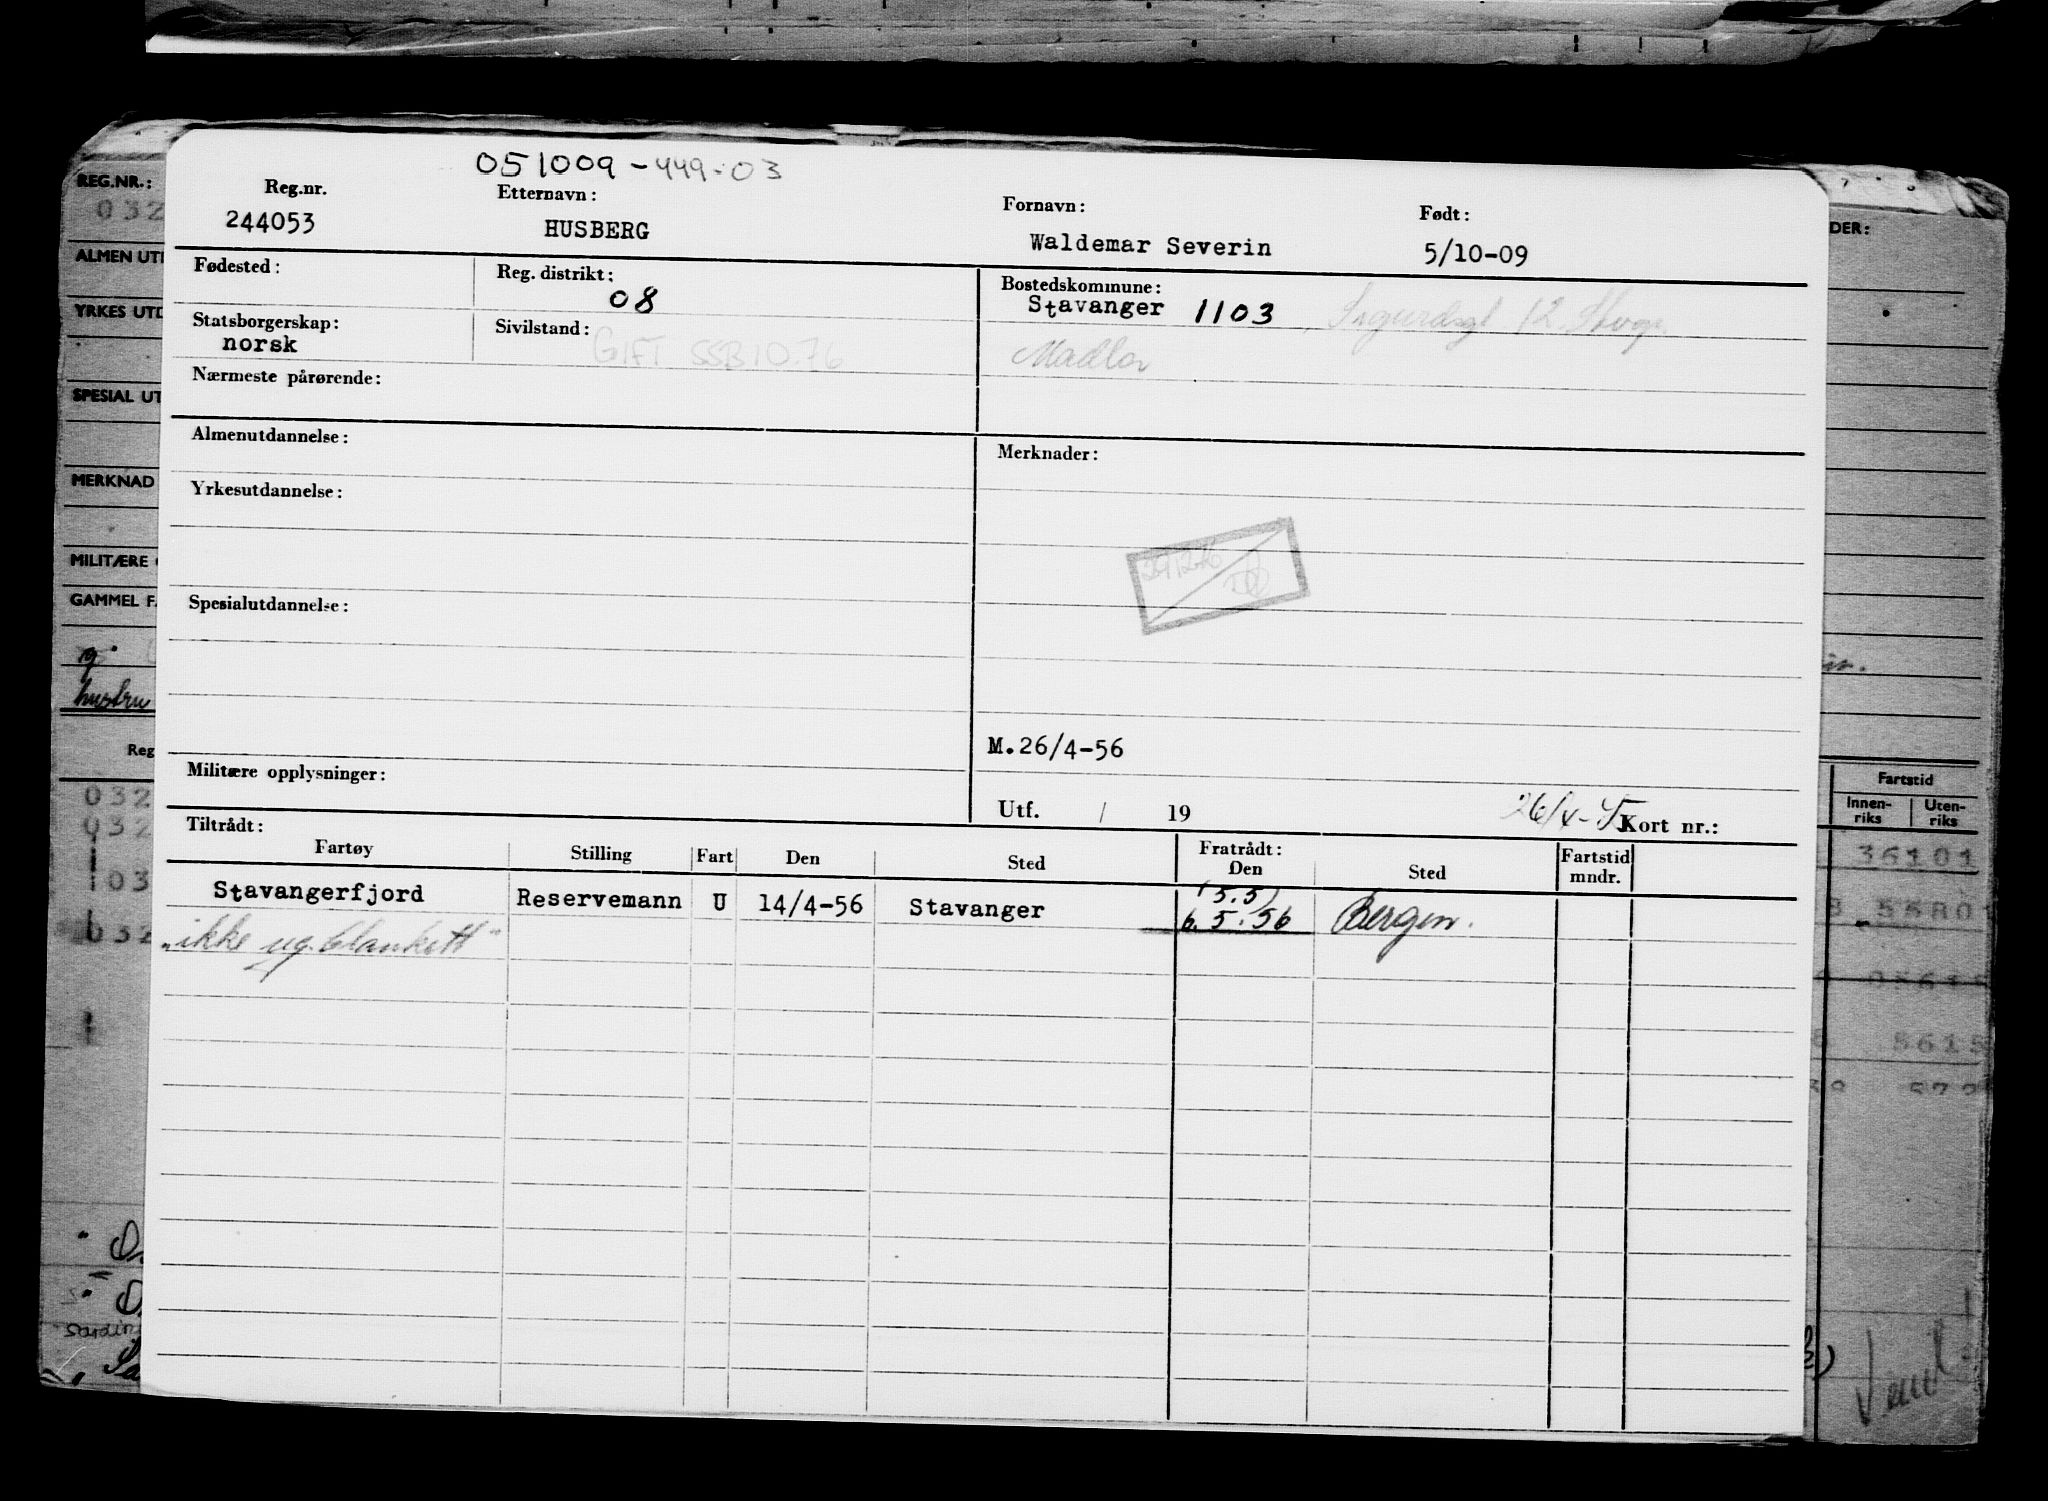 051009-449-03
Reg.nr. Etternavn: Fornavn: Født:
244053 HUSBERG Waldemar Severin 5/10-09
Fødested: Reg. distrikt: Bostedskommune:
08 Stavanger 1103
Statsborgerskap: Sivilstand:
norsk GIFT SSB 10.76 Madla
Nærmeste pårørende:
Almenutdannelse: Merknader:
Yrkesutdannelse:
Spesialutdannelse:
M.26/4-56
Militære opplysninger:
Utf. / 19 Kort nr.:
Tiltrådt: Fratrådt:
Fartøy Stilling Fart Den Sted Den Sted Fartstid mndr.
Stavangerfjord Reservemann U 14/4-56 Stavanger (5.5) 6.5.56 Bergen.
"ikke ug. blankett"
REG.NR.:
032
ALMEN UT
YRKES UTD
SPESIAL UT
MERKNAD
MILITÆRE
GAMMEL F
g.
hustru
Reg
032
032
103
032
DER:
Fartstid
Innen-riks Uten-riks
36101
5615
572
Vend